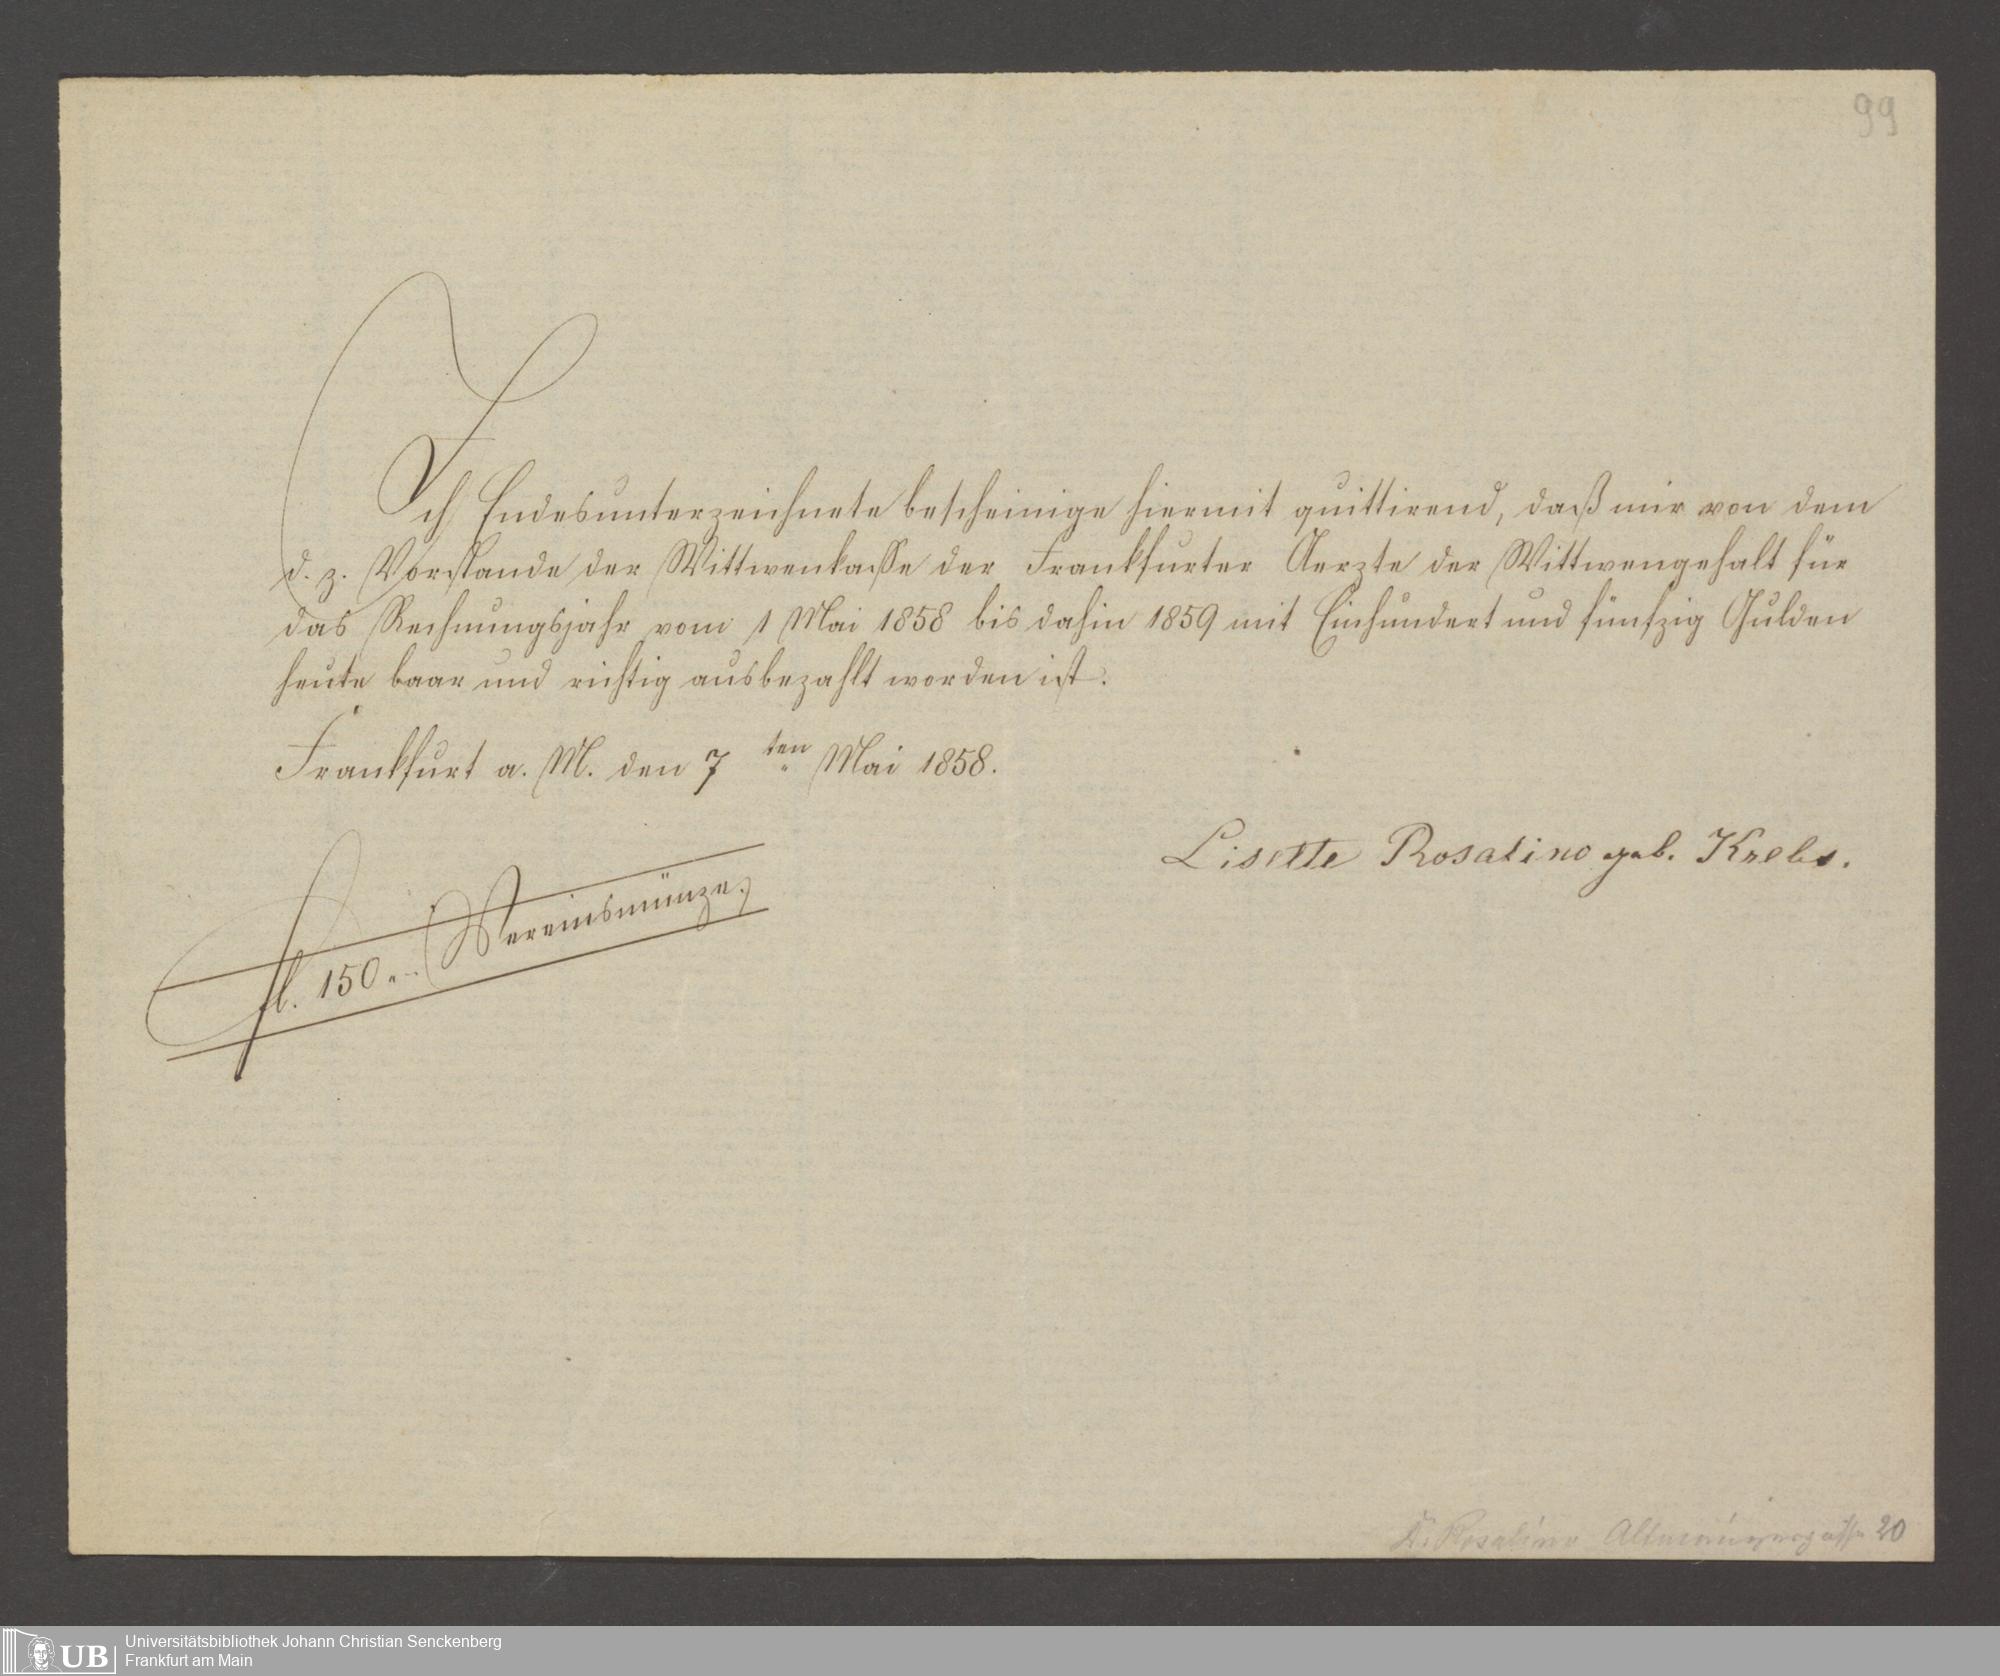 99
Ich Endesunterzeichnete bescheinige hiermit quittirend, daß mir von dem
d. z. Vorstande der Wittwenkasse der Frankfurter Aerzte der Wittwengehalt für
das Rechnungsjahr vom 1 Mai 1858 bis dahin 1859 mit Einhundert und fünfzig Gulden
heute baar und richtig ausbezahlt worden ist.
Frankfurt a. M. den 7ten Mai 1858.
Lisette Rosalino geb. Krebs.
fl. 150.-. Vereinsmünze.
Rosalino Altmainzergasse 20
Universitätsbibliothek Johann Christian Senckenberg
Frankfurt am Main
UB